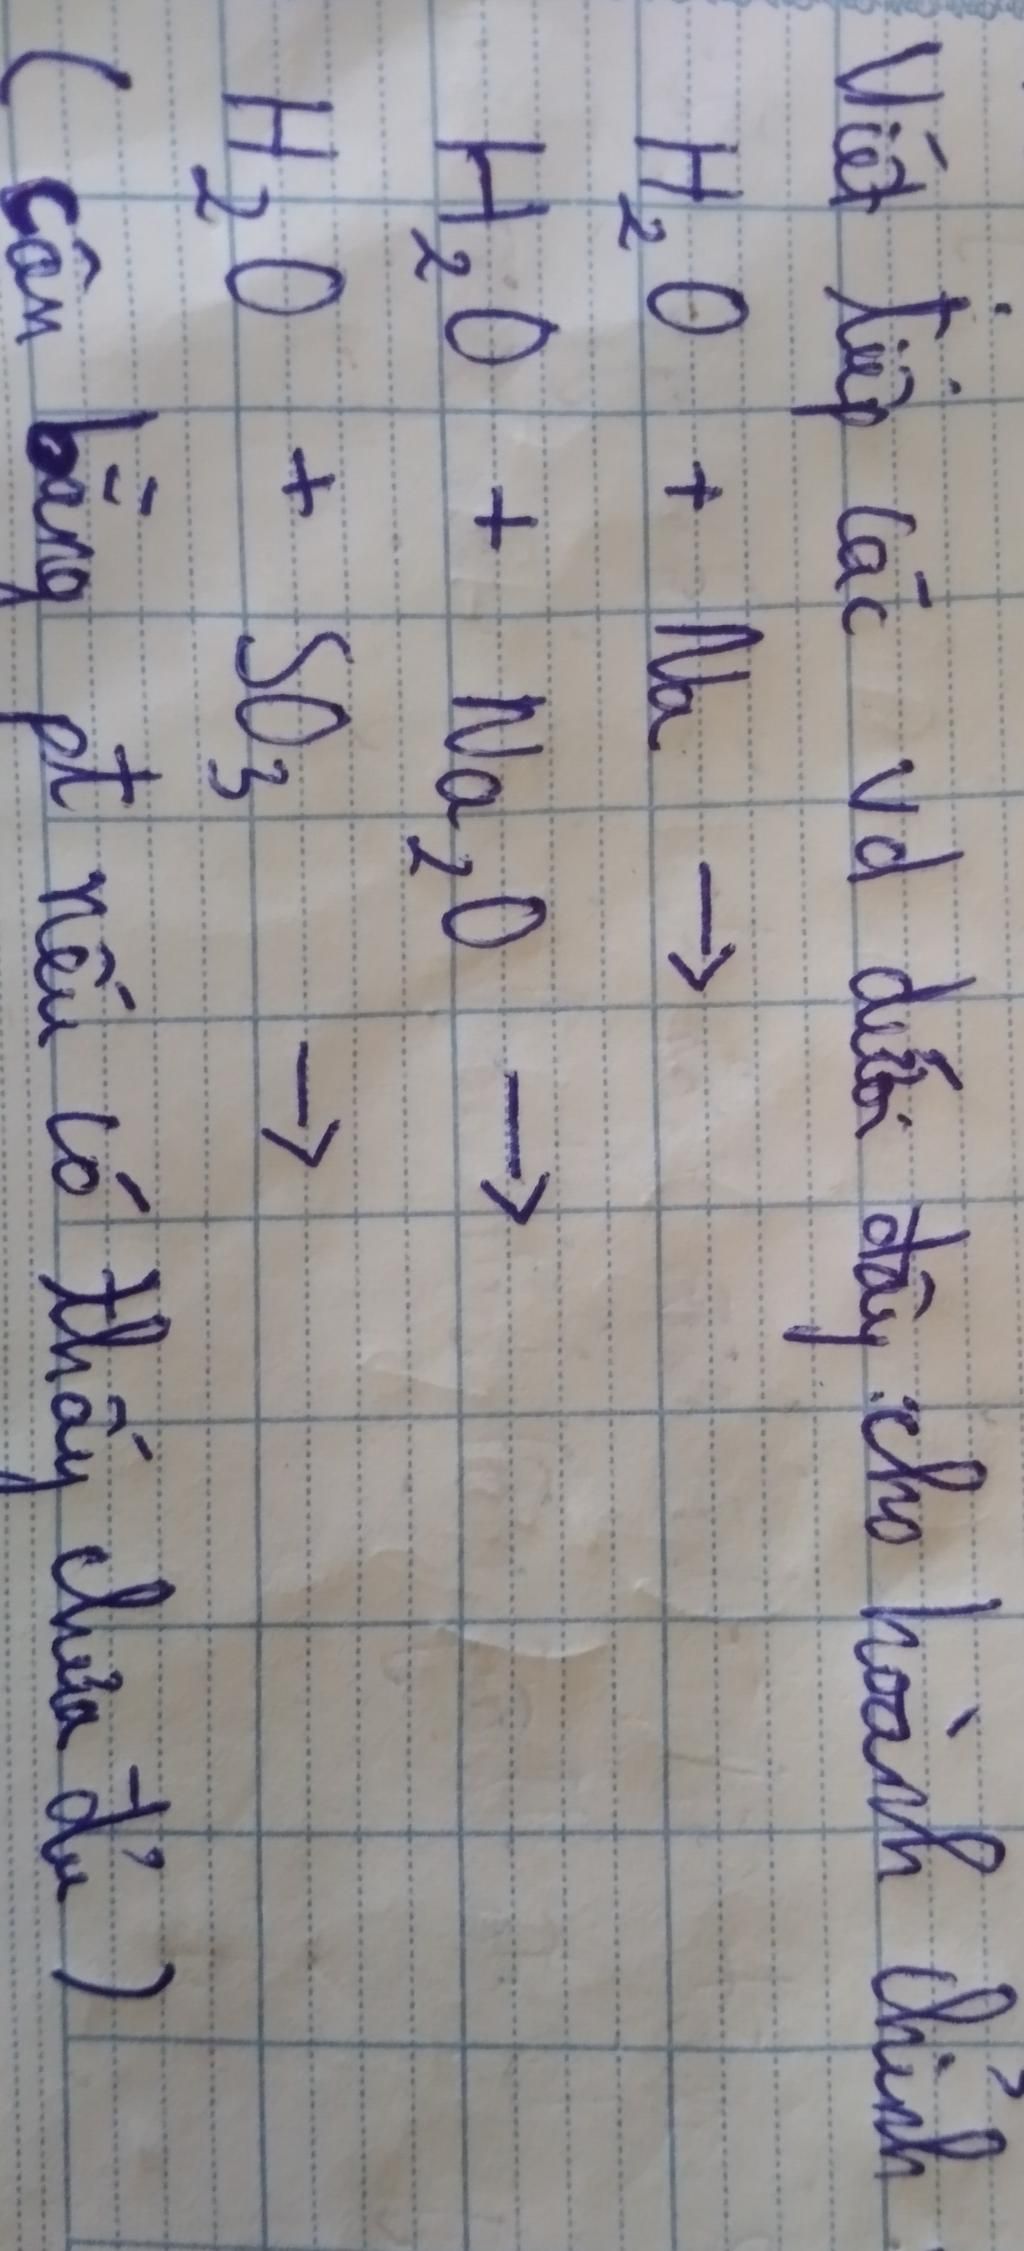 Viết tiếp các vd dưới đây cho hoành chỉnh
H₂O + Na →
H₂O + Na₂O →
H₂O + SO₃ →
( Cân bằng pt nếu có thấy chưa đủ )